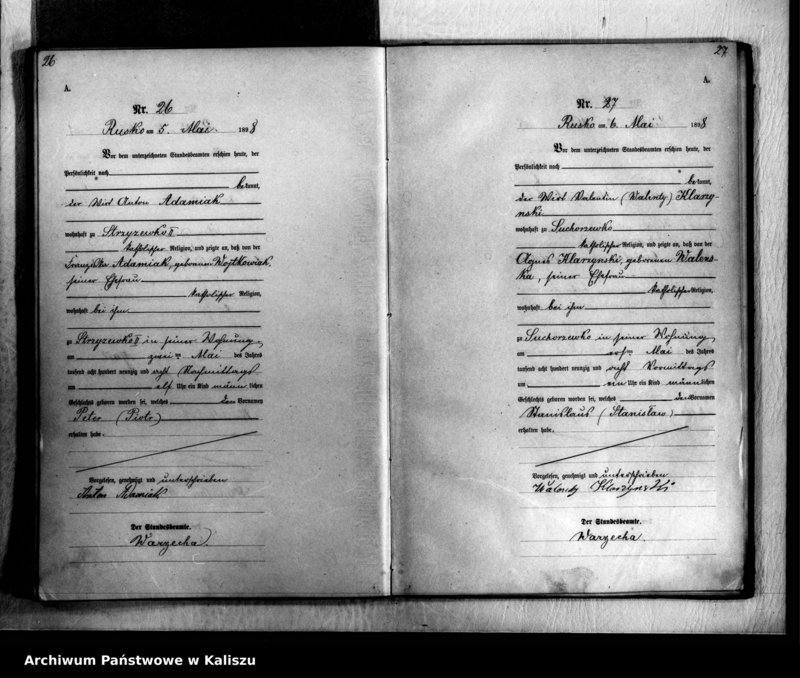 26
A.
Nr. 26
Rusko am 5. Mai 1898
Vor dem unterzeichneten Standesbeamten erschien heute, der
Persönlichkeit nach
bekannt,
der Wirt Anton Adamiak
wohnhaft zu Strzyzewko II.
katholischer Religion, und zeigte an, daß von der
Franziska Adamiak, geborenen Wojtkowiak,
seiner Ehefrau
katholischer Religion,
wohnhaft bei ihm
zu Strzyzewko II in seiner Wohnung,
am zwei ten Mai des Jahres
tausend acht hundert neunzig und acht Vormittags
um elf Uhr ein Kind männlichen
Geschlechts geboren worden sei, welches den Vornamen
Peter (Piotr)
erhalten habe.
Vorgelesen, genehmigt und unterschrieben
Anton Adamiak
Der Standesbeamte.
Warzecha.
27
A.
Nr. 27
Rusko am 6. Mai 1898
Vor dem unterzeichneten Standesbeamten erschien heute, der
Persönlichkeit nach
bekannt,
der Wirt Valentin (Walenty) Klarzy-
nski
wohnhaft zu Suchorzewko
katholischer Religion, und zeigte an, daß von der
Agnes Klarzynski, geborenen Walens-
ka, seiner Ehefrau
katholischer Religion,
wohnhaft bei ihm
zu Suchorzewko in seiner Wohnung,
am ersten Mai des Jahres
tausend acht hundert neunzig und acht Vormittags
um ein Uhr ein Kind männlichen
Geschlechts geboren worden sei, welches den Vornamen
Stanislaus (Stanisław)
erhalten habe.
Vorgelesen, genehmigt und unterschrieben
Walenty Klarzynski
Der Standesbeamte.
Warzecha.
Archiwum Państwowe w Kaliszu